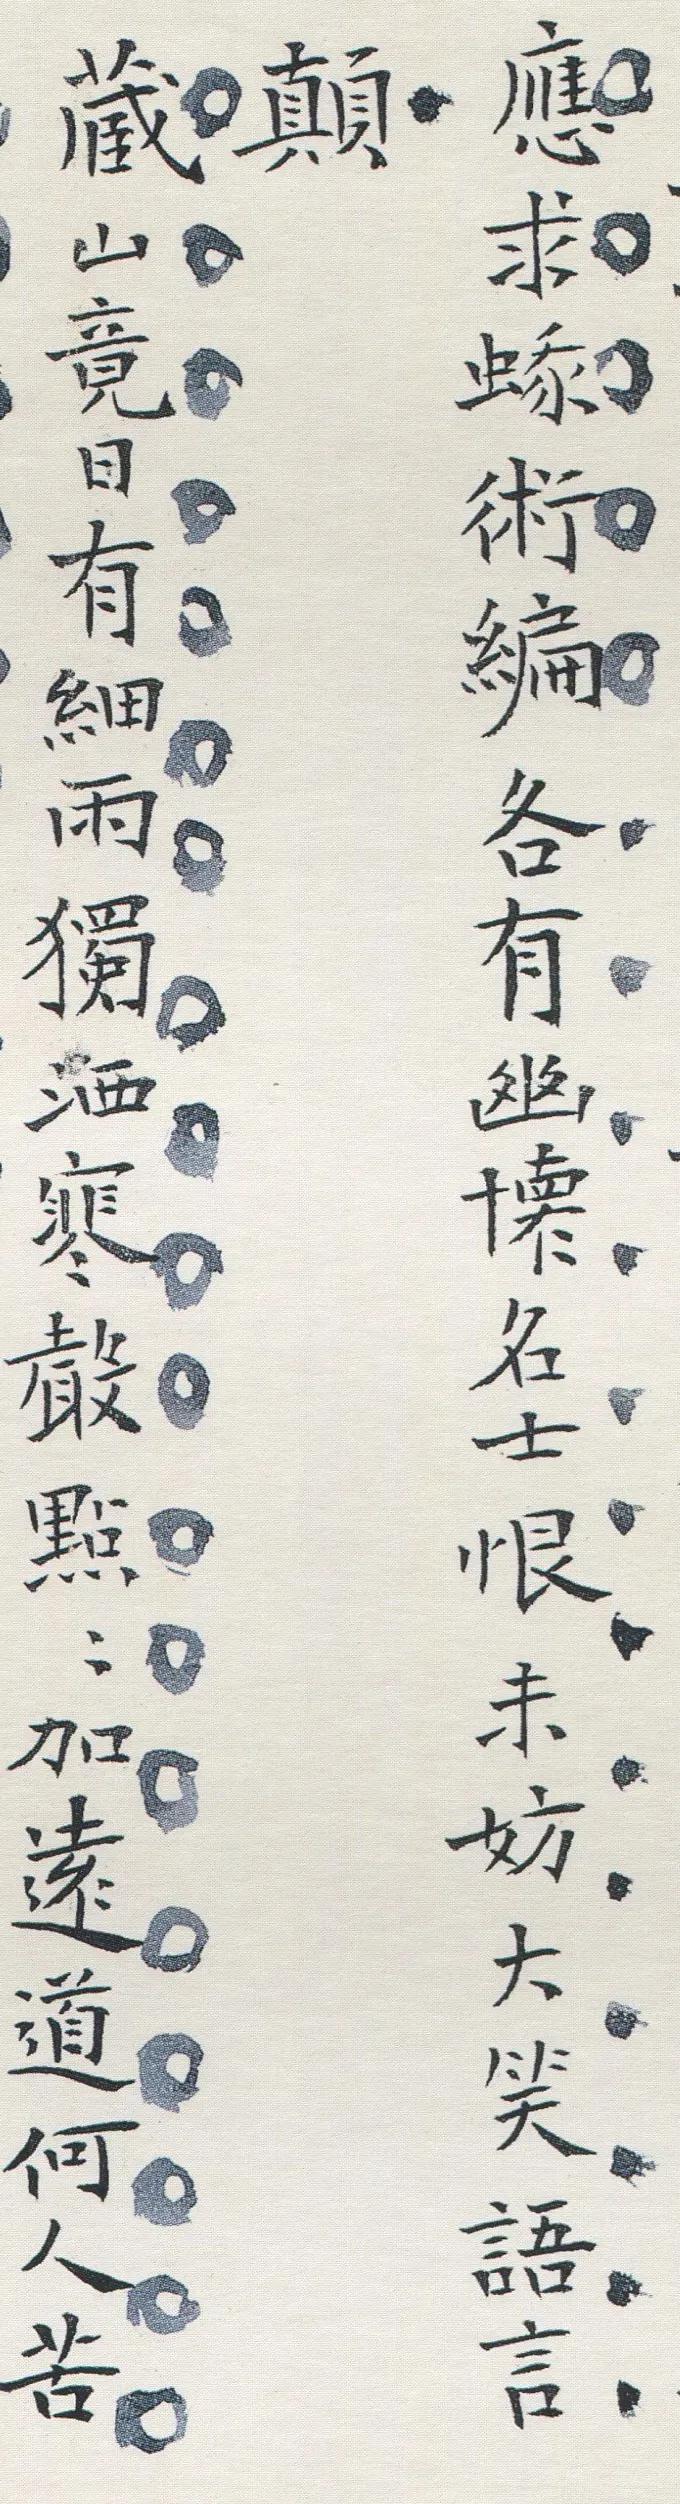 應求術編各有幽懷名士恨未妨大笑語言
顛
藏山竟日有細雨獨洒寒聲點〻加遠道何人苦